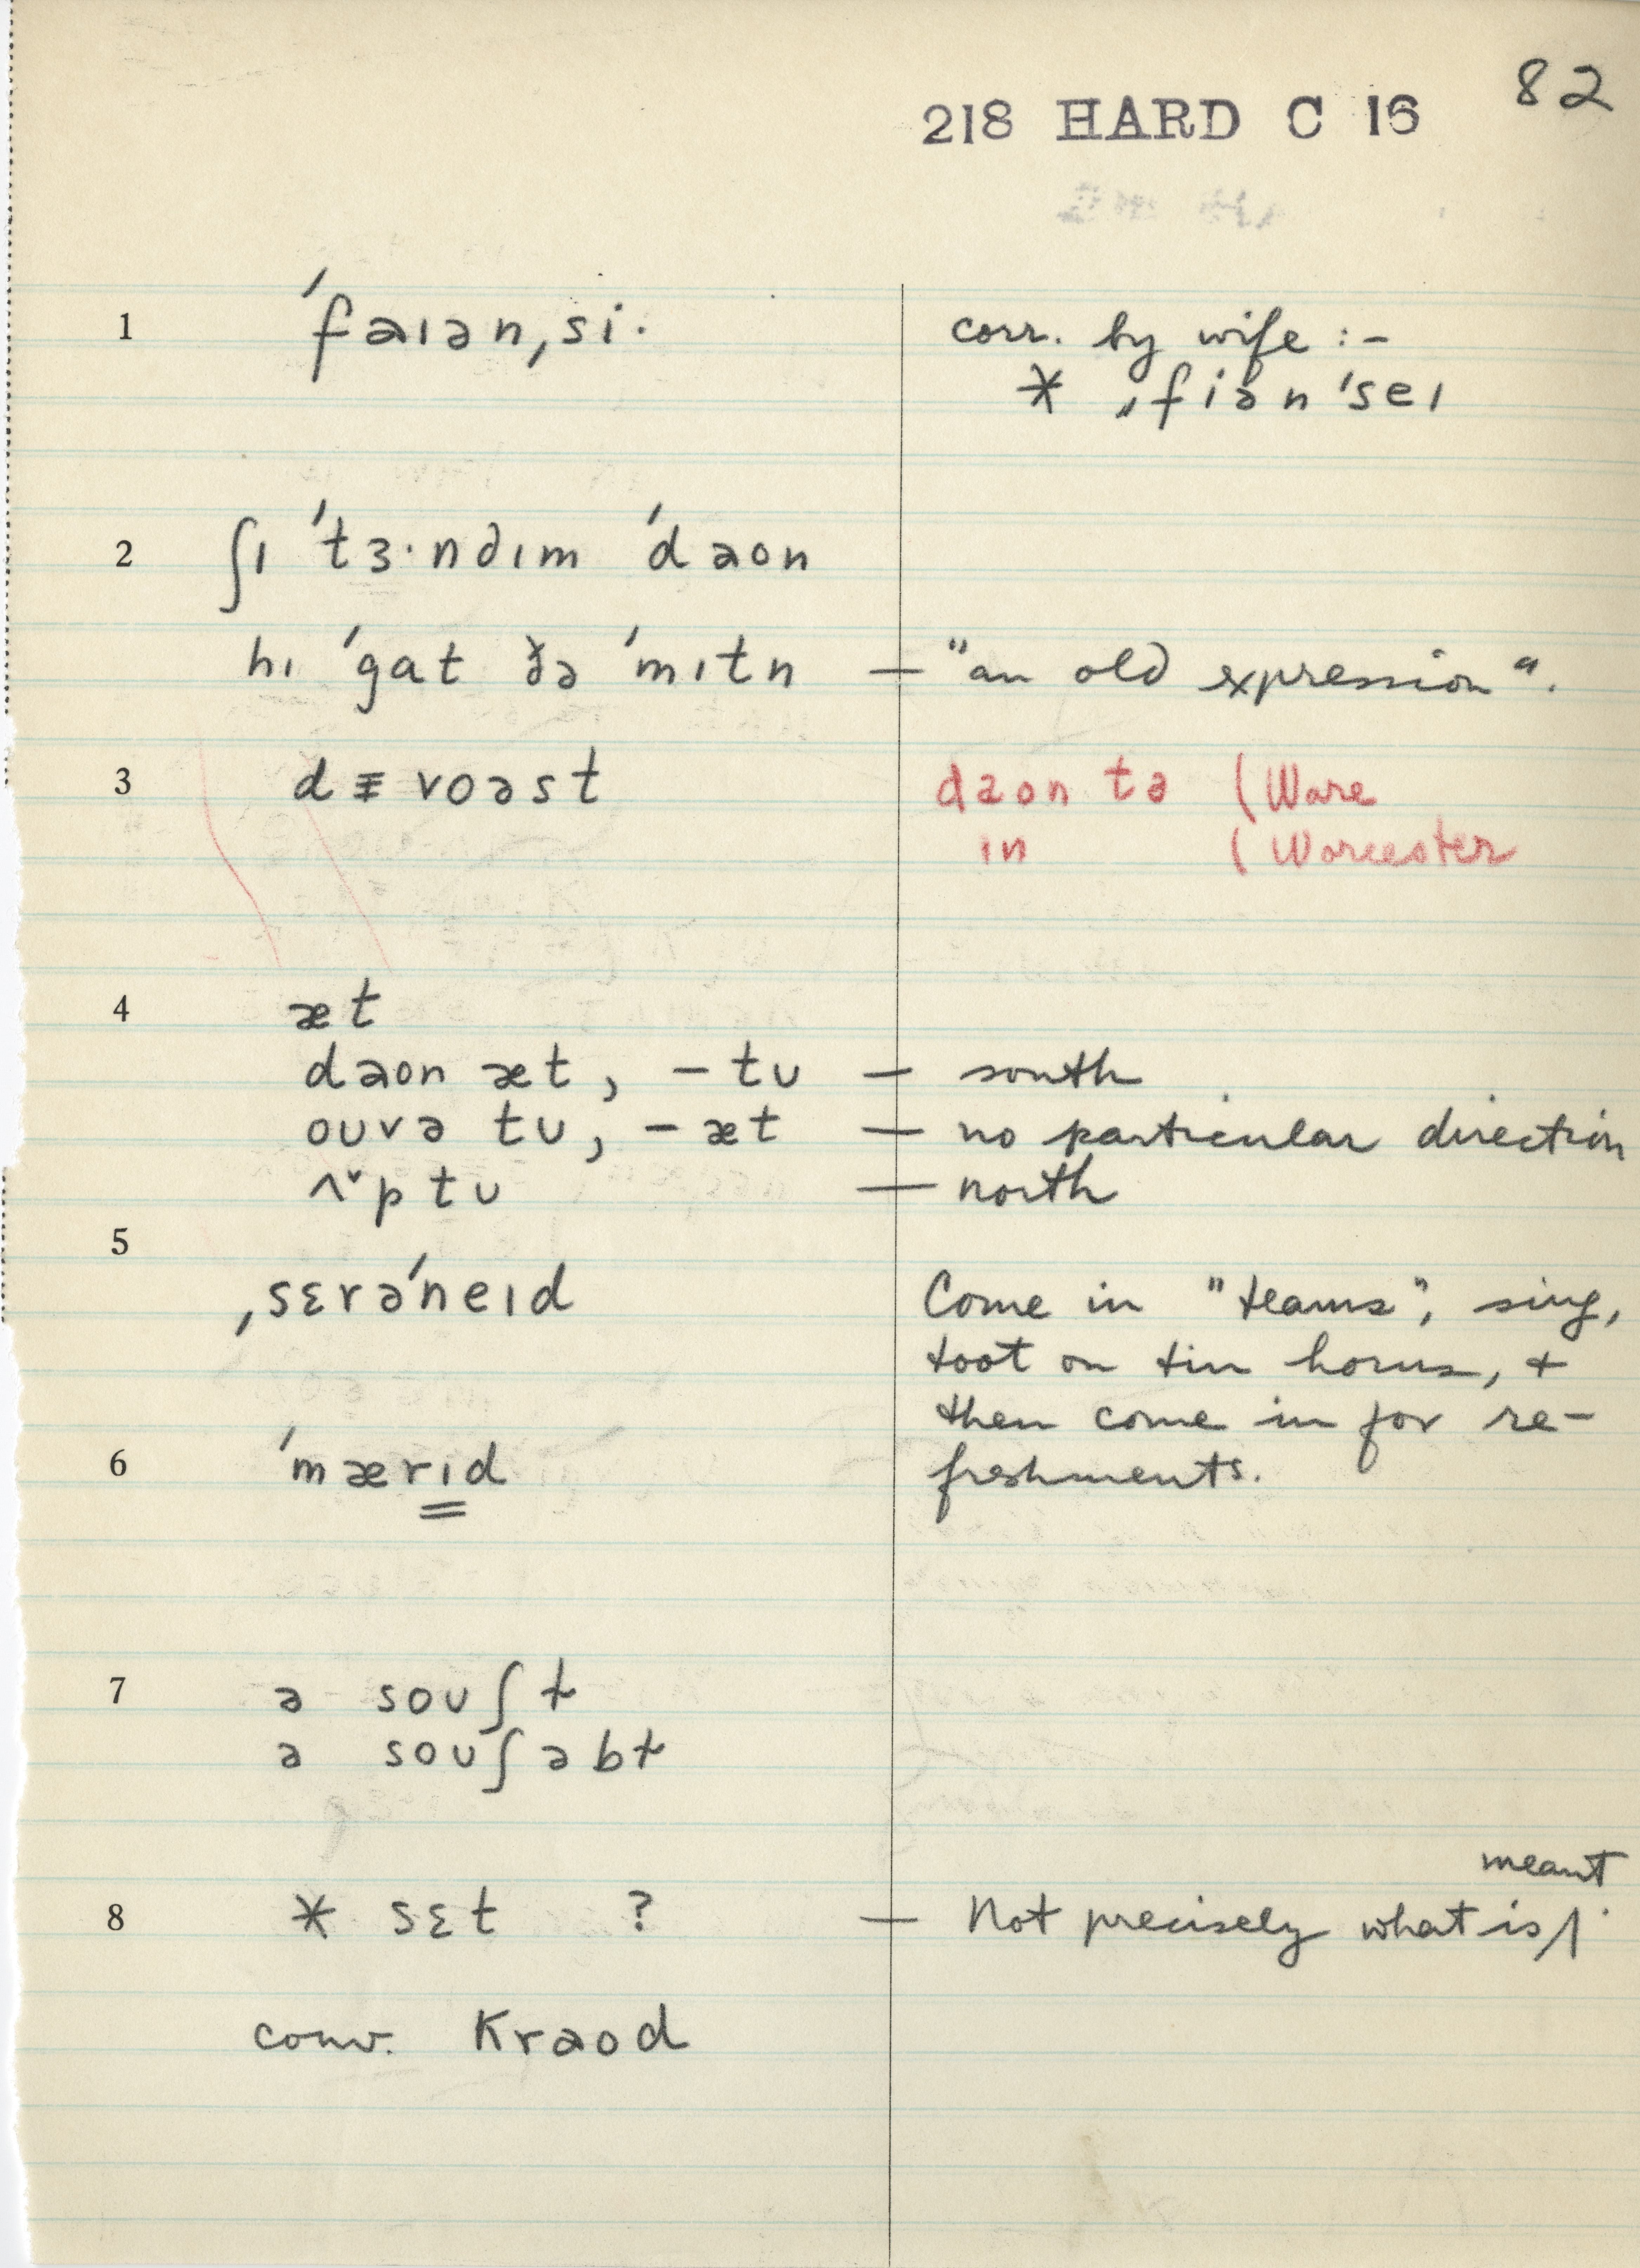 82
218 HARD C 16
1 ˈfaɪən,si· corr. by wife :-
* ,fiən ˈseɪ
2 ʃɪ ˈtɜ·nðɪm ˈdaon
hɪ ˈgat ðə ˈmɪtn — "an old expression".
3 dᵻvoəst daon tə (Ware
in (Worcester
4 æt
daon æt, -tu — south
ouvə tu, -æt — no particular direction
ʌ˅p tu — north
5
,sɛrəˈneɪd Come in "teams", sing,
toot on tin horns, +
then come in for re-
6 ˈmærɪd freshments.
7 ə souʃt
ə souʃəbt
meant
8 * sɛt ? — Not precisely what is/.
conv. Kraod